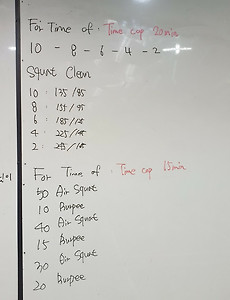 For Time of : Time cap 20min
10 - 8 - 6 - 4 - 2
Squat Clean
10 : 135 / 95
8 : 155 / 95
6 : 185 /
4 : 225 /
2 : 245 /
For Time of : Time cap 15min
50 Air Squat
10 Burpee
40 Air Squat
15 Burpee
30 Air Squat
20 Burpee